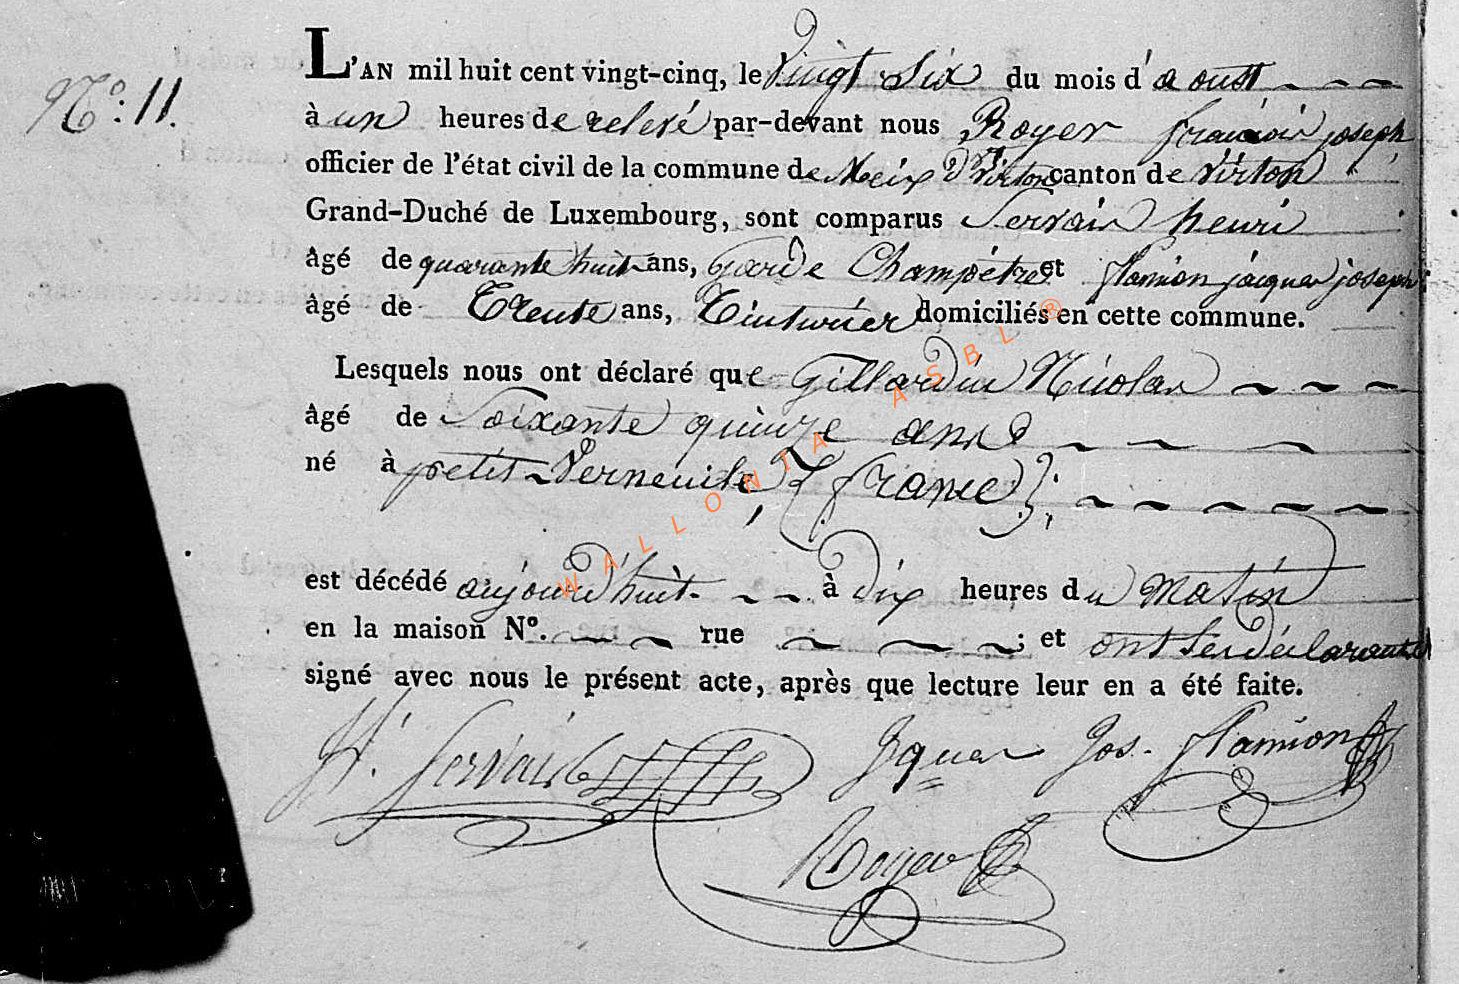 N.º 11.
L'AN mil huit cent vingt-cinq, le vingt Six du mois d'aoust
à un heures de relevé par-devant nous Royer francois joseph
officier de l'état civil de la commune de Meix dt Virton canton de Virton
Grand-Duché de Luxembourg, sont comparus Servais henri
âgé de quarante huit ans, garde Champêtre et flamion jacques joseph
âgé de Trente ans, Tinturier domiciliés en cette commune.
Lesquels nous ont déclaré que Gillardin Nicolas
âgé de Soixante quinze ans
né à petit Verneuile, (france);
est décédé aujourd'huit à dix heures du matin
en la maison N°. rue ; et ont les déclarants
signé avec nous le présent acte, après que lecture leur en a été faite.
H. Servais Jques Jos. flamion
Royer
WALLONIA ASBL ®